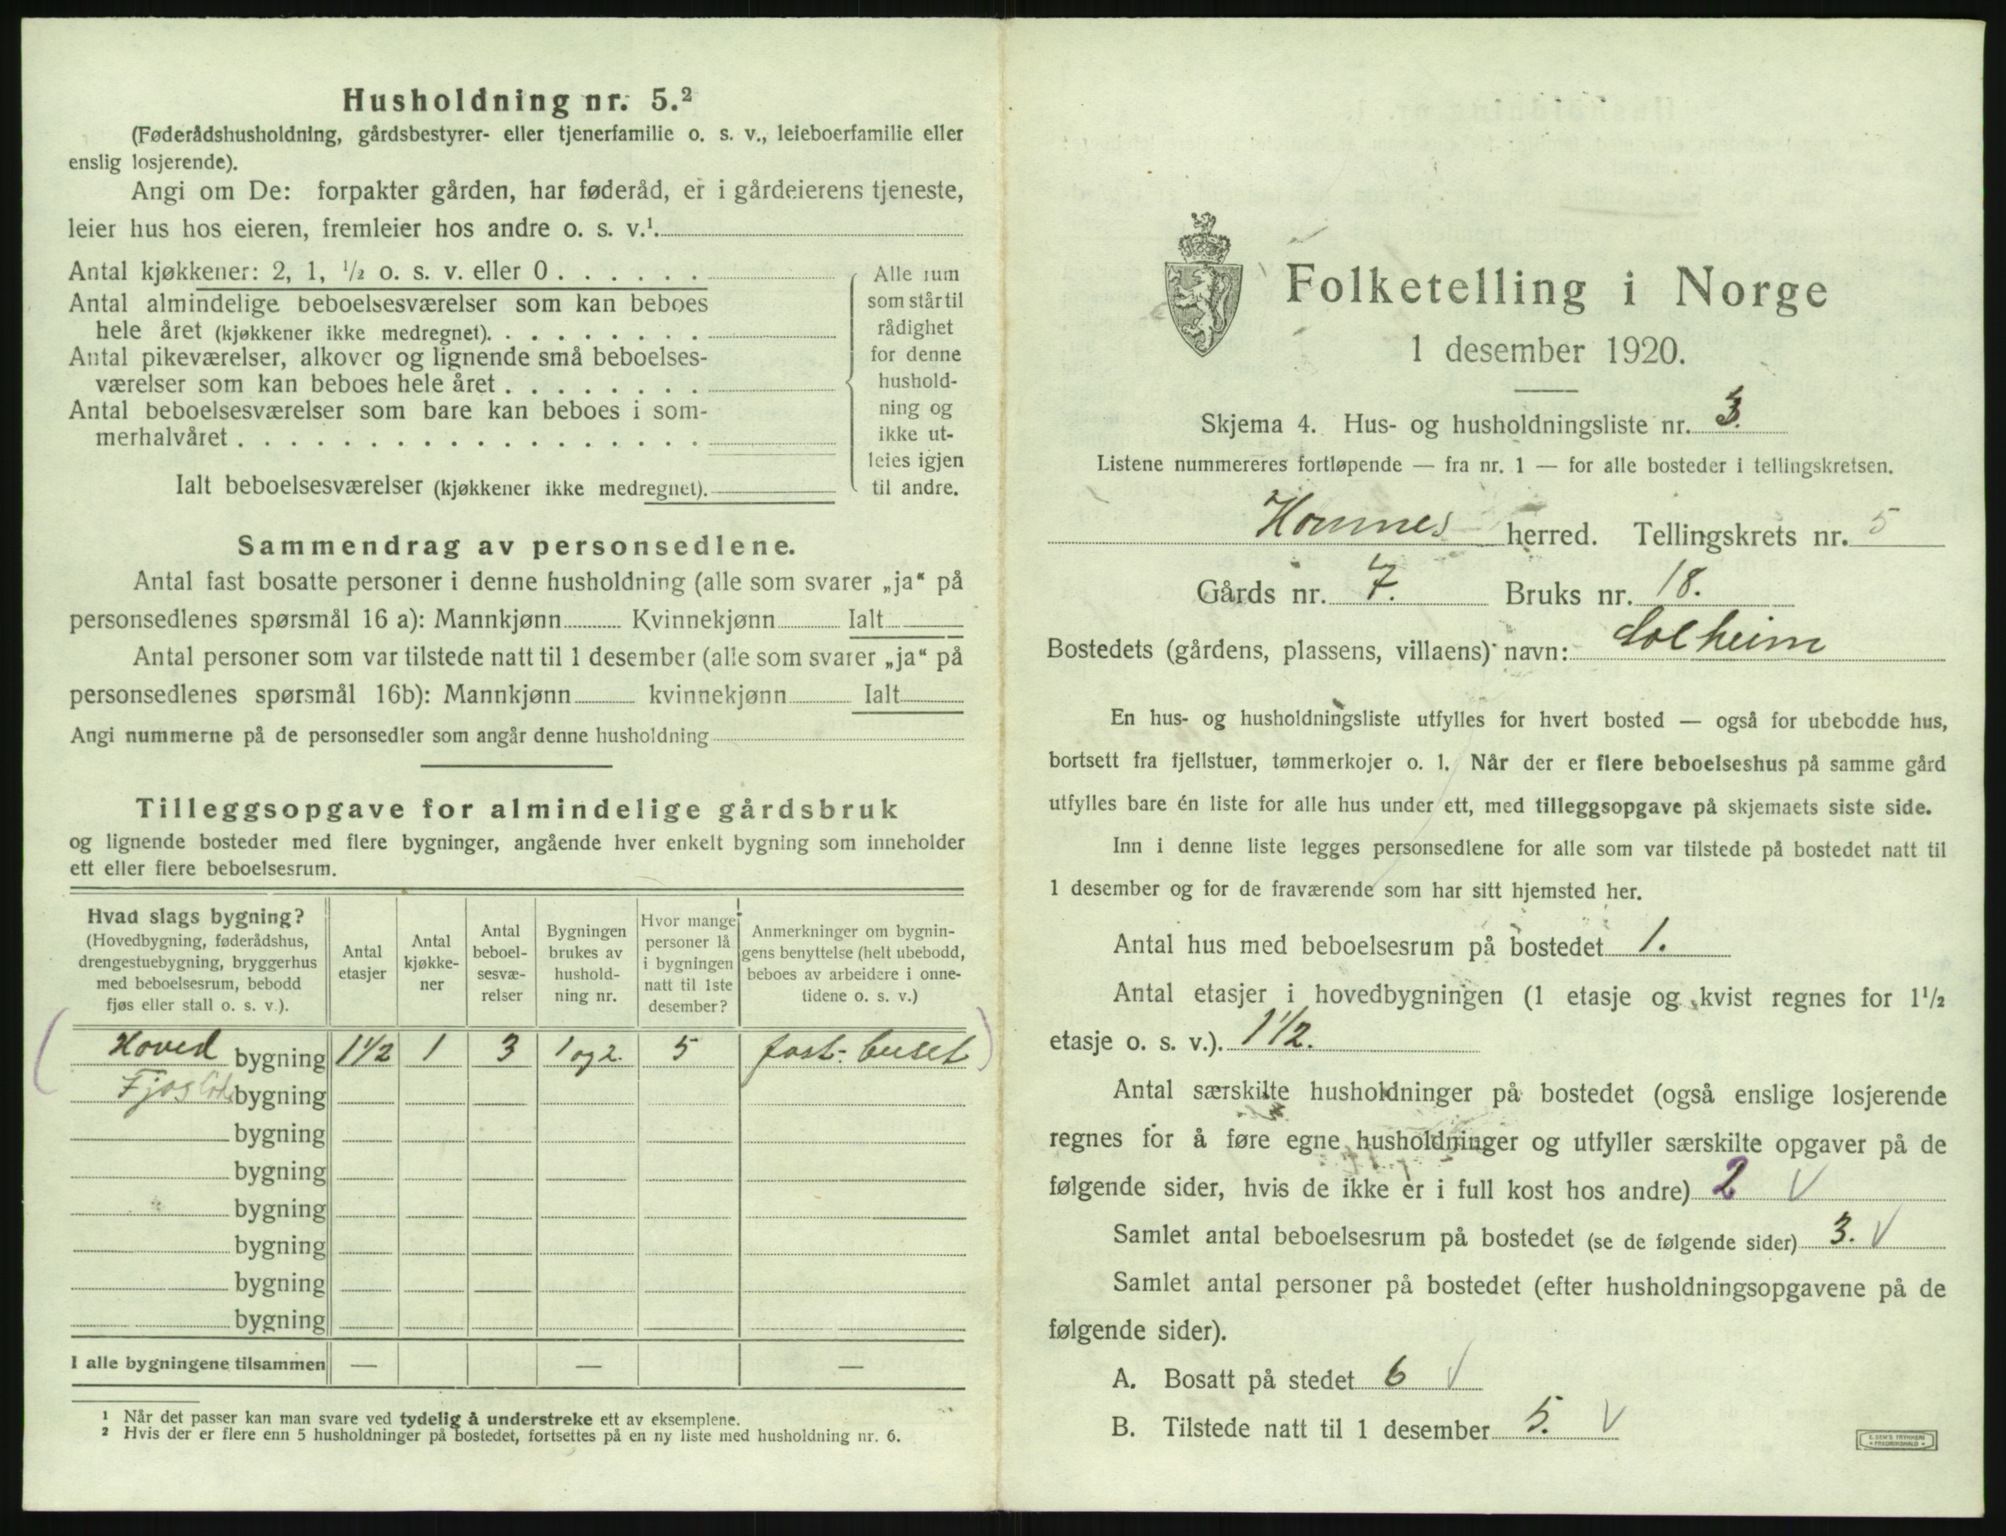 Husholdning nr. 5.²
(Føderådshusholdning, gårdsbestyrer- eller tjenerfamilie o. s. v., leieboerfamilie eller
enslig losjerende).
Angi om De: forpakter gården, har føderåd, er i gårdeierens tjeneste,
leier hus hos eieren, fremleier hos andre o. s. v.¹.
Antal kjøkkener: 2, 1, ½ o. s. v. eller 0
Antal almindelige beboelsesværelser som kan beboes
hele året (kjøkkener ikke medregnet).
Antal pikeværelser, alkover og lignende små beboelses-
værelser som kan beboes hele året
Antal beboelsesværelser som bare kan beboes i som-
merhalvåret
Ialt beboelsesværelser (kjøkkener ikke medregnet).
Alle rum
som står til
rådighet
for denne
hushold-
ning og
ikke ut-
leies igjen
til andre.
Sammendrag av personsedlene.
Antal fast bosatte personer i denne husholdning (alle som svarer „ja“ på
personsedlenes spørsmål 16 a): Mannkjønn Kvinnekjønn Ialt
Antal personer som var tilstede natt til 1 desember (alle som svarer „ja“ på
personsedlenes spørsmål 16b): Mannkjønn kvinnekjønn Ialt
Angi nummerne på de personsedler som angår denne husholdning
Tilleggsopgave for almindelige gårdsbruk
og lignende bosteder med flere bygninger, angående hver enkelt bygning som inneholder
ett eller flere beboelsesrum.
Hvad slags bygning?
(Hovedbygning, føderådshus,
drengestuebygning, bryggerhus
med beboelsesrum, bebodd
fjøs eller stall o. s. v.).
Antal
etasjer
Antal
kjøkke-
ner
Antal
beboel-
sesvæ-
relser
Bygningen
brukes av
hushold-
ning nr.
Hvor mange
personer lå
i bygningen
natt til 1ste
desember?
Anmerkninger om bygnin-
gens benyttelse (helt ubebodd,
beboes av arbeidere i onne-
tidene o. s. v.)
Hoved bygning 1½ 1 3 1 og 2. 5
bygning
bygning
bygning
bygning
bygning
bygning
bygning
I alle bygningene tilsammen — — —
¹ Når det passer kan man svare ved tydelig å understreke ett av eksemplene.
² Hvis der er flere enn 5 husholdninger på bostedet, fortsettes på en ny liste med husholdning nr. 6.
Folketelling i Norge
1 desember 1920.
Skjema 4. Hus- og husholdningsliste nr. 3.
Listene nummereres fortløpende — fra nr. 1 — for alle bosteder i tellingskretsen.
herred. Tellingskrets nr. 5
Gårds nr. 7. Bruks nr. 18.
Bostedets (gårdens, plassens, villaens) navn: Solheim
En hus- og husholdningsliste utfylles for hvert bosted — også for ubebodde hus,
bortsett fra fjellstuer, tømmerkojer o. l. Når der er flere beboelseshus på samme gård
utfylles bare én liste for alle hus under ett, med tilleggsopgave på skjemaets siste side.
Inn i denne liste legges personsedlene for alle som var tilstede på bostedet natt til
1 desember og for de fraværende som har sitt hjemsted her.
Antal hus med beboelsesrum på bostedet 1.
Antal etasjer i hovedbygningen (1 etasje og kvist regnes for 1½
etasje o. s. v.). 1½.
Antal særskilte husholdninger på bostedet (også enslige losjerende
regnes for å føre egne husholdninger og utfyller særskilte opgaver på de
følgende sider, hvis de ikke er i full kost hos andre) 2 V
Samlet antal beboelsesrum på bostedet (se de følgende sider) 3. V
Samlet antal personer på bostedet (efter husholdningsopgavene på de
følgende sider).
A. Bosatt på stedet 6 V
B. Tilstede natt til 1 desember 5. V